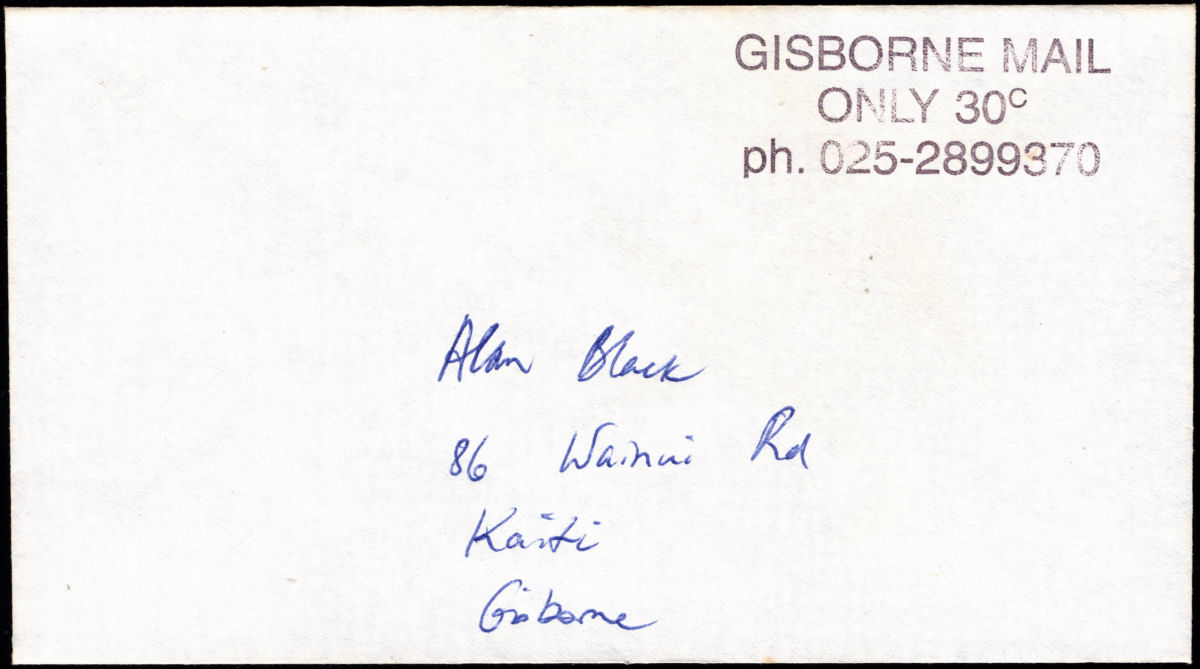 GISBORNE MAIL
ONLY 30c
ph. 025-2899370
Alan Black
86 Wainui Rd
Kaiti
Gisborne